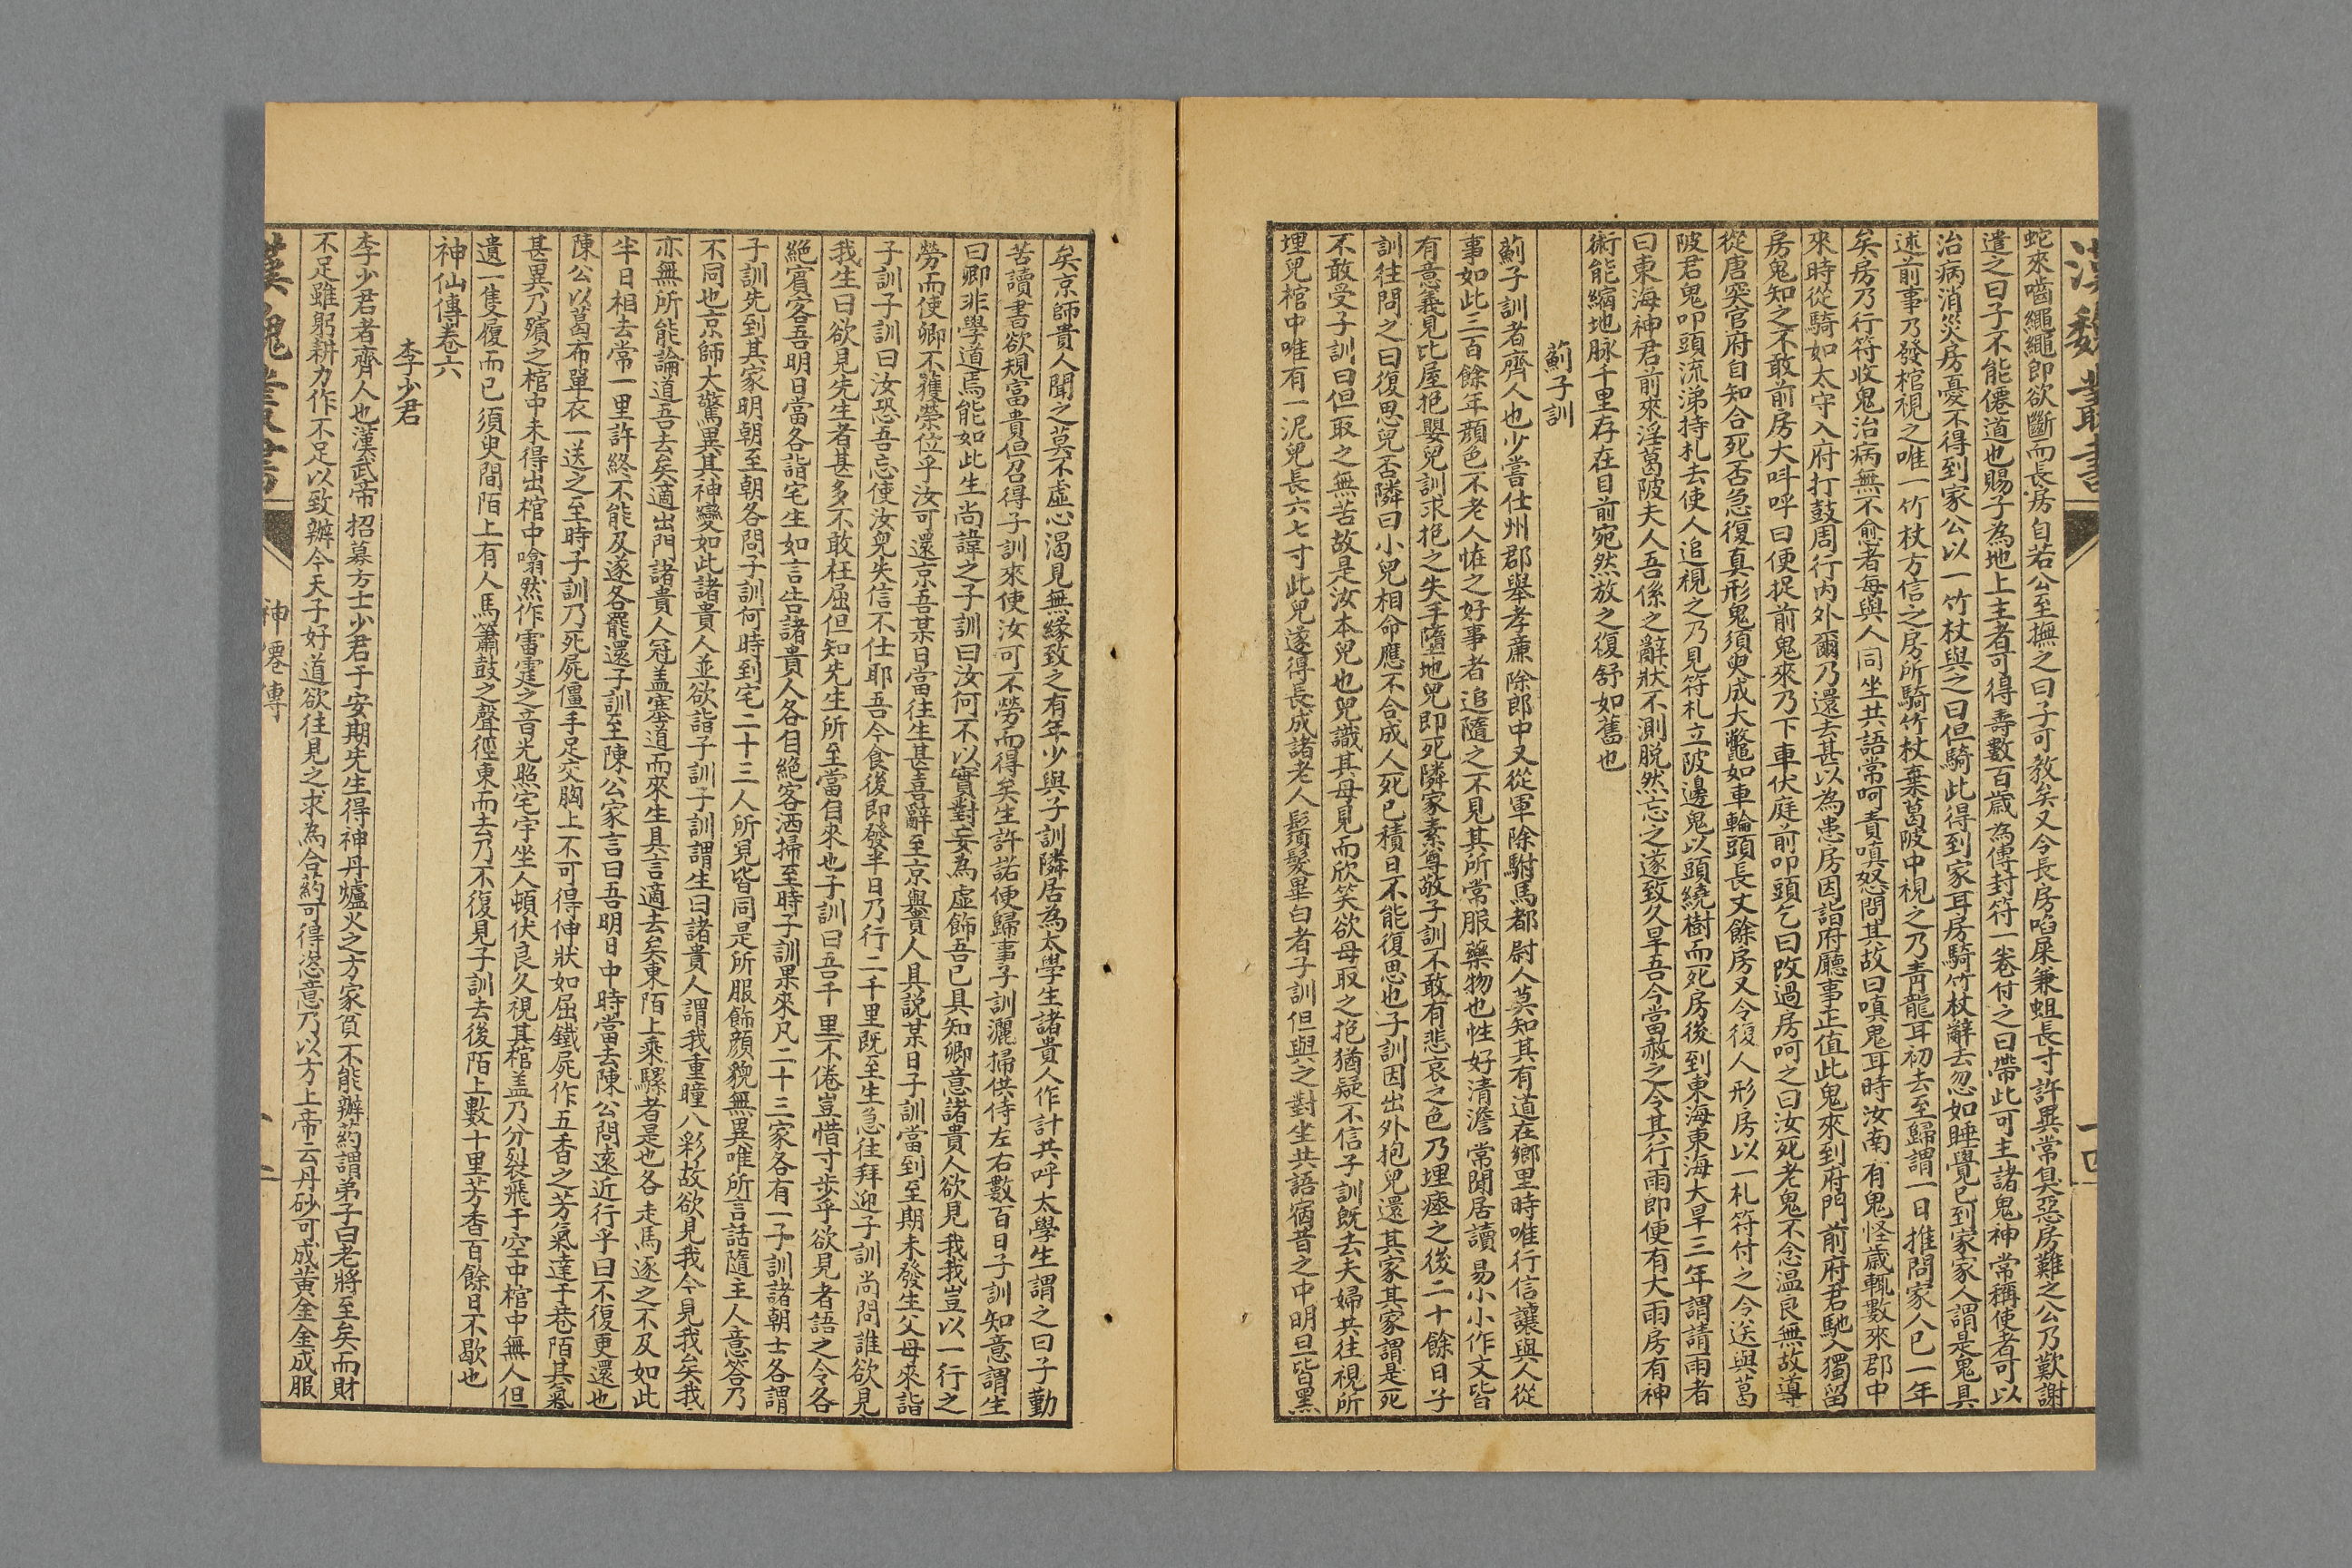 漢魏叢書
蛇來嚙繩繩即欲斷而長房自若公至撫之曰子可教矣又令長房啗屎兼蛆長寸許異常臭惡房難之公乃歎謝
遣之曰子不能僊道也賜子為地上主者可得壽數百歲為傳封符一卷付之曰帶此可主諸鬼神常稱使者可以
治病消災房憂不得到家公以一竹杖與之曰但騎此得到家耳房騎竹杖辭去忽如睡覺已到家家人謂是鬼具
述前事乃發棺視之唯一竹杖方信之房所騎竹杖棄葛陂中視之乃青龍耳初去至歸謂一日推問家人已一年
矣房乃行符收鬼治病無不愈者每與人同坐共語常呵責嗔怒問其故曰嗔鬼耳時汝南有鬼怪歲輒數來郡中
來時從騎如太守入府打鼓周行內外爾乃還去甚以為患房因詣府廳事正值此鬼來到府門前府君馳入獨留
房鬼知之不敢前房大呌呼曰便捉前鬼來乃下車伏庭前叩頭乞曰改過房呵之曰汝死老鬼不念温良無故導
從唐突官府自知合死否急復真形鬼須臾成大鼈如車輪頭長丈餘房又令復人形房以一札符付之令送與葛
陂君鬼叩頭流涕持札去使人追視之乃見符札立陂邊鬼以頭繞樹而死房後到東海東海大旱三年謂請雨者
曰東海神君前來淫葛陂夫人吾係之辭狀不測脱然忘之遂致久旱吾今當赦之令其行雨即便有大雨房有神
術能縮地脉千里存在目前宛然放之復舒如舊也
薊子訓
薊子訓者齊人也少嘗仕州郡舉孝廉除郎中又從軍除駙馬都尉人莫知其有道在鄉里時唯行信讓與人從
事如此三百餘年顏色不老人恠之好事者追隨之不見其所常服藥物也性好清澹常閒居讀易小小作文皆
有意義見比屋抱嬰兒訓求抱之失手墮地兒即死隣家素尊敬子訓不敢有悲哀之色乃埋瘞之後二十餘日子
訓往問之曰復思兒否隣曰小兒相命應不合成人死已積日不能復思也子訓因出外抱兒還其家其家謂是死
不敢受子訓曰但取之無苦故是汝本兒也兒識其母見而欣笑欲母取之抱猶疑不信子訓既去夫婦共往視所
埋兒棺中唯有一泥兒長六七寸此兒遂得長成諸老人鬚髮畢白者子訓但與之對坐共語宿昔之中明旦皆黑
矣京師貴人聞之莫不虛心渴見無緣致之有年少與子訓隣居為太學生諸貴人作計共呼太學生謂之曰子勤
苦讀書欲規富貴但召得子訓來使汝可不勞而得矣生許諾便歸事子訓灑掃供侍左右數百日子訓知意謂生
曰卿非學道焉能如此生尚諱之子訓曰汝何不以實對妄為虛飾吾已具知卿意諸貴人欲見我我豈以一行之
勞而使卿不獲榮位乎汝可還京吾某日當往生甚喜辭至京與貴人具説某日子訓當到至期未發生父母來詣
子訓子訓曰汝恐吾忘使汝兒失信不仕耶吾今食後即發半日乃行二千里既至生急往拜迎子訓尚問誰欲見
我生曰欲見先生者甚多不敢枉屈但知先生所至當自來也子訓曰吾千里不倦豈惜寸步乎欲見者語之令各
絕賓客吾明日當各詣宅生如言告諸貴人各自絕客洒掃至時子訓果來凡二十三家各有一子訓諸朝士各謂
子訓先到其家明朝至朝各問子訓何時到宅二十三人所見皆同是所服飾顏貌無異唯所言話隨主人意答乃
不同也京師大驚異其神變如此諸貴人並欲詣子訓子訓謂生曰諸貴人謂我重瞳八彩故欲見我今見我矣我
亦無所能論道吾去矣適出門諸貴人冠盖塞道而來生具言適去矣東陌上乘騾者是也各走馬逐之不及如此
半日相去常一里許終不能及遂各罷還子訓至陳公家言曰吾明日中時當去陳公問遠近行乎曰不復更還也
陳公以葛布單衣一送之至時子訓乃死屍僵手足交胸上不可得伸狀如屈鐵屍作五香之芳氣達于巷陌其氣
甚異乃殯之棺中未得出棺中噏然作雷霆之音光照宅宇坐人頓伏良久視其棺盖乃分裂飛于空中棺中無人但
遺一隻履而已須臾間陌上有人馬簫鼓之聲徑東而去乃不復見子訓去後陌上數十里芳香百餘日不歇也
神仙傳卷六
李少君
李少君者齊人也漢武帝招募方士少君于安期先生得神丹爐火之方家貧不能辦葯謂弟子曰老將至矣而財
不足雖躬耕力作不足以致辦今天子好道欲往見之求為合葯可得恣意乃以方上帝云丹砂可成黃金金成服
漢魏叢書
神僊傳